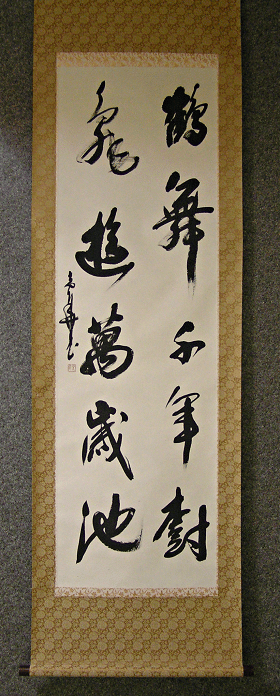 鶴舞千年樹
亀遊萬歳池